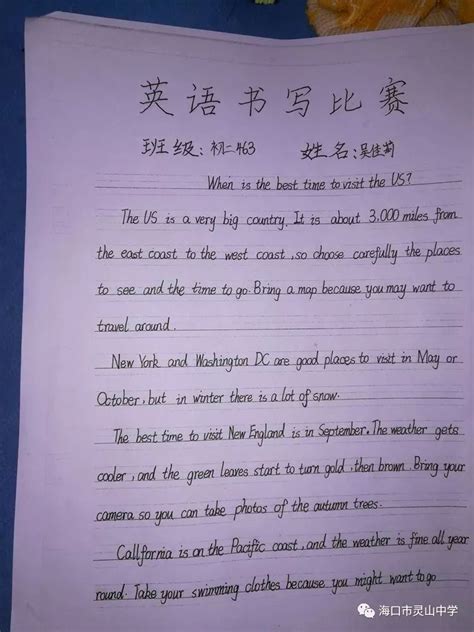 英语书写比赛
班级:初二463 姓名:吴佳莉
When is the best time to visit the US?
The US is a very big country. It is about 3,000 miles from
the east coast to the west coast, so choose carefully the places
to see and the time to go. Bring a map because you may want to
travel around.
New York and Washington DC are good places to visit in May or
October, but in winter there is a lot of snow.
The best time to visit New England is in September. The weather gets
cooler, and the green leaves start to turn gold, then brown. Bring your
camera so you can take photos of the autumn trees.
Callfornia is on the Pacific coast, and the weather is fine all year
round. Take your swimming clothes because you might want to go
海口市灵山中学